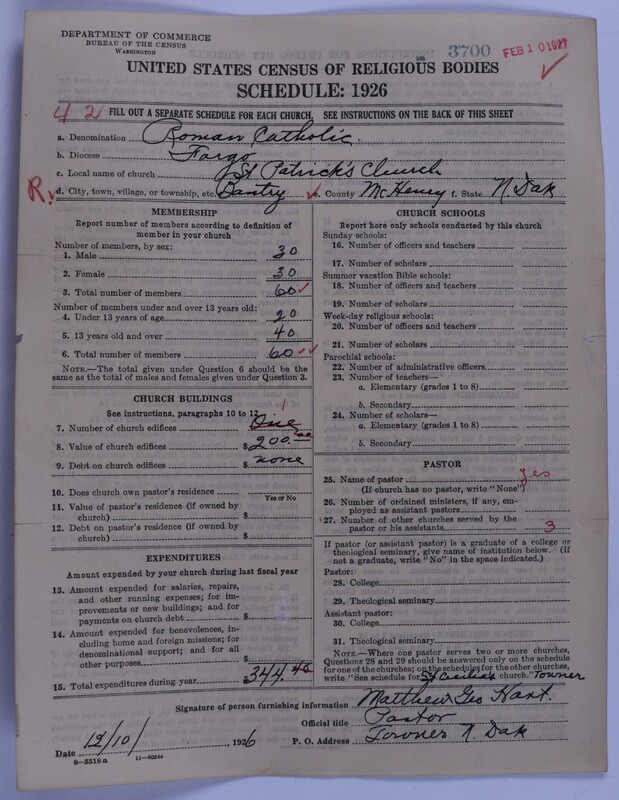 DEPARTMENT OF COMMERCE
BUREAU OF THE CENSUS
WASHINGTON
3700 FEB 10 1927
UNITED STATES CENSUS OF RELIGIOUS BODIES
SCHEDULE: 1926
42 FILL OUT A SEPARATE SCHEDULE FOR EACH CHURCH. SEE INSTRUCTIONS ON THE BACK OF THIS SHEET
a. Denomination Roman Catholic
b. Diocese Fargo
c. Local name of church St Patrick's Church
d. City, town, village, or township, etc. Bantry e. County McHenry f. State N. Dak
MEMBERSHIP
Report number of members according to definition of
member in your church
Number of members, by sex:
1. Male 30
2. Female 30
3. Total number of members 60
Number of members under and over 13 years old:
4. Under 13 years of age 20
5. 13 years old and over 40
6. Total number of members 60
NOTE.—The total given under Question 6 should be
same as the total of males and females given under Question 3.
CHURCH BUILDINGS
See instructions, paragraphs 10 to 12
7. Number of church edifices One 1
8. Value of church edifices $ 200.00
9. Debt on church edifices $ none
10. Does church own pastor's residence
Yes or No
11. Value of pastor's residence (if owned by
church) $
12. Debt on pastor's residence (if owned by
church) $
EXPENDITURES
Amount expended by your church during last fiscal year
13. Amount expended for salaries, repairs,
and other running expenses; for im-
provements or new buildings; and for
payments on church debt $
14. Amount expended for benevolences, in-
cluding home and foreign missions; for
denominational support; and for all
other purposes $
15. Total expenditures during year 344.40
CHURCH SCHOOLS
Report here only schools conducted by this church
Sunday schools:
16. Number of officers and teachers
17. Number of scholars
Summer vacation Bible schools:
18. Number of officers and teachers
19. Number of scholars
Week-day religious schools:
20. Number of officers and teachers
21. Number of scholars
Parochial schools:
22. Number of administrative officers
23. Number of teachers—
a. Elementary (grades 1 to 8)
b. Secondary
24. Number of scholars—
a. Elementary (grades 1 to 8)
b. Secondary
PASTOR
25. Name of pastor yes
(If church has no pastor, write "None")
26. Number of ordained ministers, if any, em-
ployed as assistant pastors
27. Number of other churches served by the
pastor or his assistants 3
If pastor (or assistant pastor) is a graduate of a college or
theological seminary, give name of institution below. (If
not a graduate, write "No" in the space indicated.)
Pastor:
28. College
29. Theological seminary
Assistant pastor:
30. College
31. Theological seminary
NOTE.—Where one pastor serves two or more churches,
Questions 28 and 29 should be answered only on the schedule
for one of the churches; on the schedules for the other churches,
write "See schedule for St Cecilia's church." Towner
Signature of person furnishing information Matthew Geo Hart.
Official title Pastor
Date 12/10/ 1926 P. O. Address Towner N. Dak
8-5518a 11-9064a